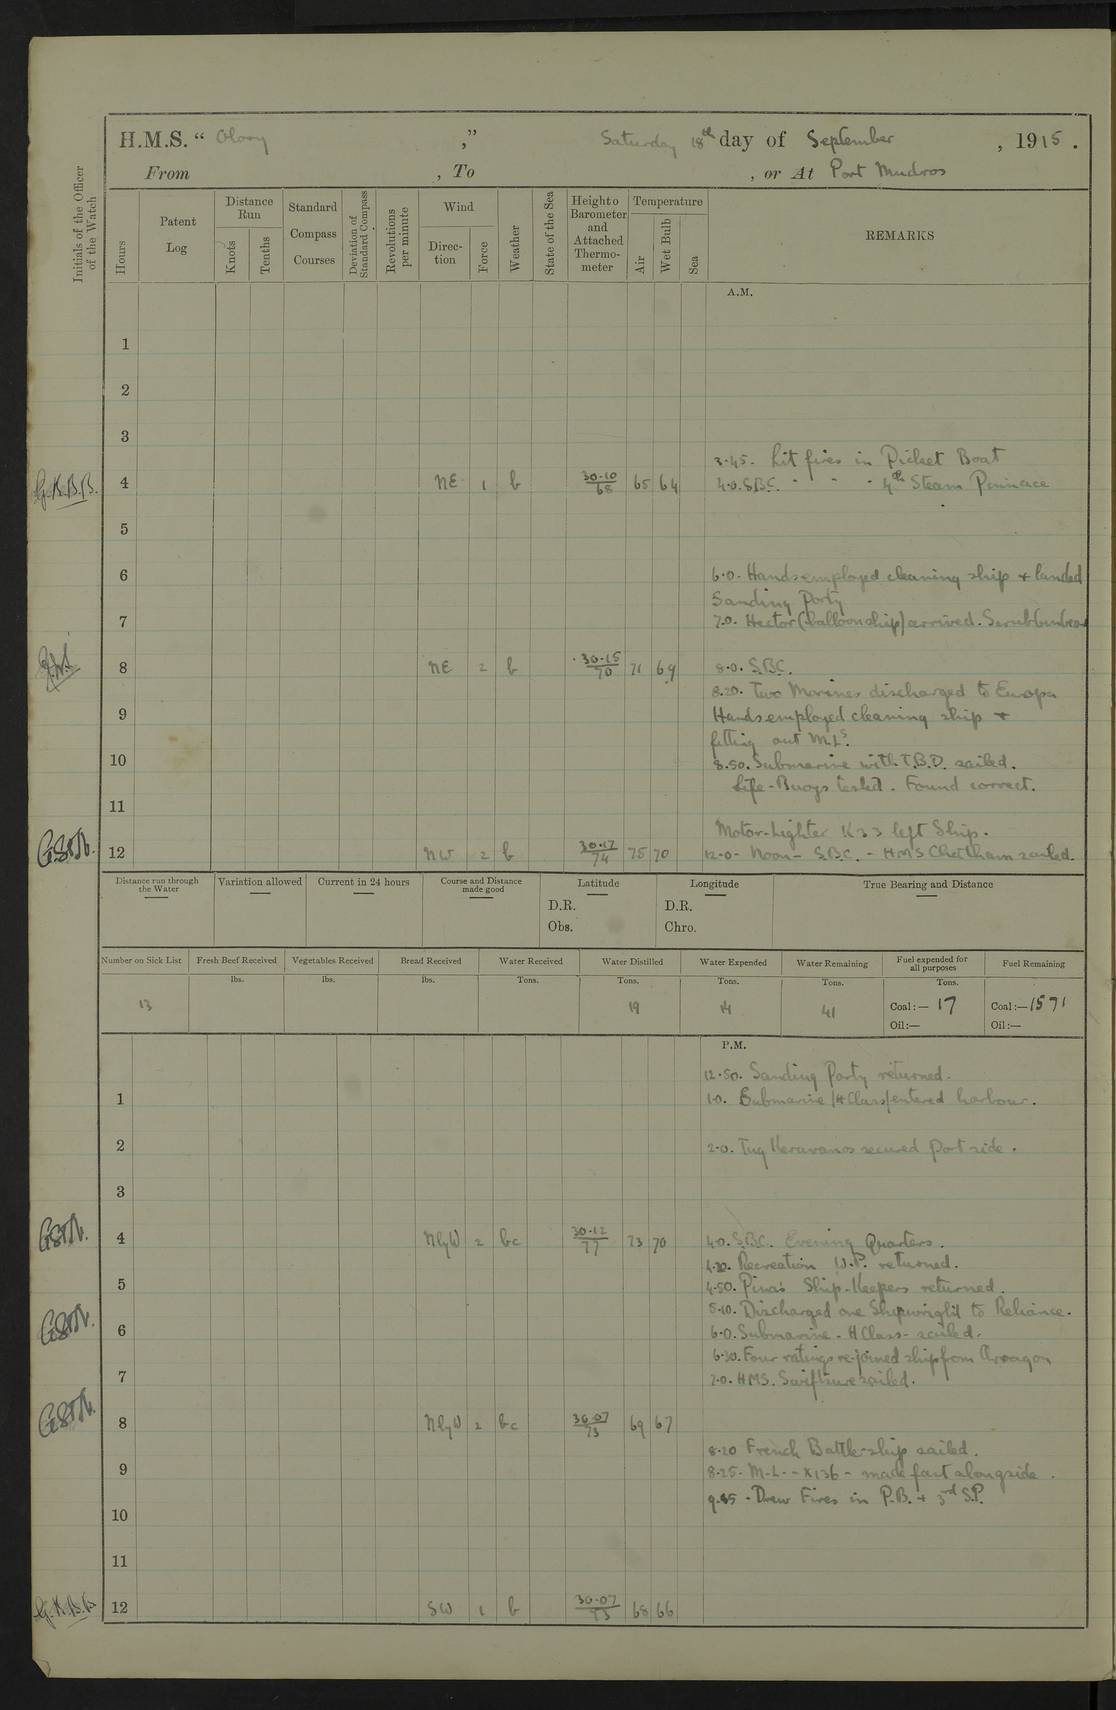 H.M.S. " Glory , " Saturday 18th day of September , 1915 .
From , To , or At Port Mudros
Initials of the Officer of the Watch
Hours
Patent Log
Distance Run
Knots
Tenths
Standard Compass Courses
Deviation of Standard Compass
Revolutions per minute
Wind
Direc-tion
Force
Weather
State of the Sea
Height o Barometer and Attached Thermo-meter
Temperature
Air
Wet Bulb
Sea
REMARKS
A.M.
1
2
3
3.45. Lit fires in Picket Boat
G.K.B.B. 4 NE 1 b 30.10/68 65 64 4.0. S.B.C. " " " 4th Steam Pinnace
5
6 6.0. Hands employed cleaning ship + landed
Sanding Party
7 7.0. Hector (balloon ship) arrived.
8 NE 2 b 30.15/70 71 69 8.0. S.B.C.
8.20. Two Marines discharged to Europa
9 Hands employed cleaning ship +
fitting out M.Ls.
10 8.50. Submarine with T.B.D. sailed.
Life-Buoys tested. Found correct.
11
Motor-Lighter K33 left Ship.
12 NW 2 b 30.17/74 75 70 12.0 - Noon - S.B.C. - HMS Chelt ham sailed.
Distance run through the Water
Variation allowed
Current in 24 hours
Course and Distance made good
Latitude
D.R.
Obs.
Longitude
D.R.
Chro.
True Bearing and Distance
Number on Sick List
Fresh Beef Received
Vegetables Received
Bread Received
Water Received
Water Distilled
Water Expended
Water Remaining
Fuel expended for all purposes
Fuel Remaining
lbs. lbs. lbs. Tons. Tons. Tons. Tons. Tons.
13 19 14 41 Coal:— 17 Coal:—1571
Oil:— Oil:—
P.M.
12.50. Sanding Party returned.
1 1.0. Submarine (H Class) entered harbour.
2 2.0. Tug Keravanos secured Port side.
3
4 NlyW 2 bc 30.12/77 73 70 4.0. S.B.C. Evening Quarters.
4.30. Recreation W.P. returned.
5 4.50. Pina's Ship-Keepers returned.
5.10. Discharged one Shipwright to Reliance.
6 6.0. Submarine - H Class - sailed.
6.30. Four ratings re-joined ship from Aragon
7 7.0. HMS. Swiftsure sailed.
8 NlyW 2 bc 30.07/73 69 67
8.20 French Battle-ship sailed.
9 8.25 - M-L - - X136 - made fast alongside.
9.45 - Drew Fires in P.B. + 3rd S.P.
10
11
G.K.B.B. 12 SW 1 b 30.07/73 68 66